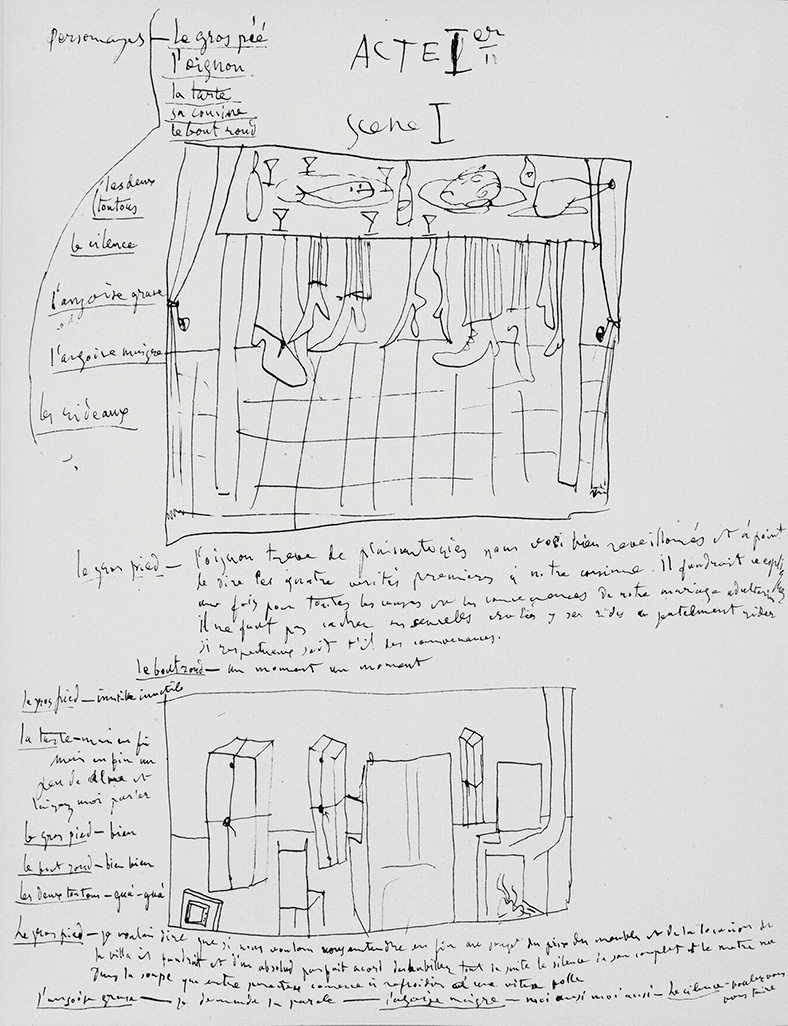 Personages — le gros pié
l'oignon
la tarte
sa cousine
le bout rond
ACTE Ier
scene I
les deux
toutous
le cilence
l'angoise grase
l'angoise maigre
les rideaux
le gros pied — l'oignon treve de plaisentogies nous vosi bien reveillonés et à point
de dire les quatre verités premieres a notre cousine. Il faudrait
une fois pour toutes les causes ou les consecuences de notre mariage adulterin
Il ne faut pas cacher ses rides au
si respectueux soit t'il des convenances.
le bout rond — un moment un moment
le gros pied — inutile inutile
la tarte — mais en fin
mais en fin un
peu de et
laisez moi parler
le gros pied — bien
le bout rond — bien bien
les deux toutous — guá-guá
Le gros pied — je voulais dire que si nous voulons nous entendre en fin au sujet du prix des meubles et de la location de
la villa il faudrait et d'un absolud parfait acord desabiller tout de suite le silence de son complet et le metre nu
dans la soupe que entre parentese comence à refroidir à une vitese folle
l'angoise grase — je demande la parole — l'agoise maigre — moi ausi moi ausi — Le cilence — voulez vous
vous taire